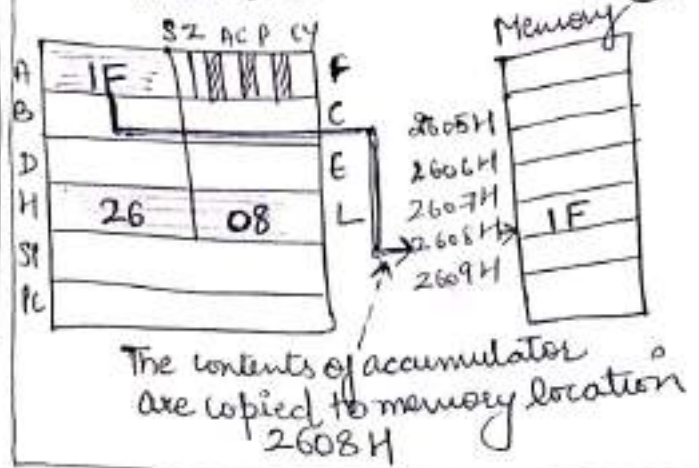 S Z AC P CY
Memory
A 1F F
B C
D E
H 26 08 L
SP
PC
2605H
2606H
2607H
2608H 1F
2609H
The contents of accumulator
are copied to memory location
2608H